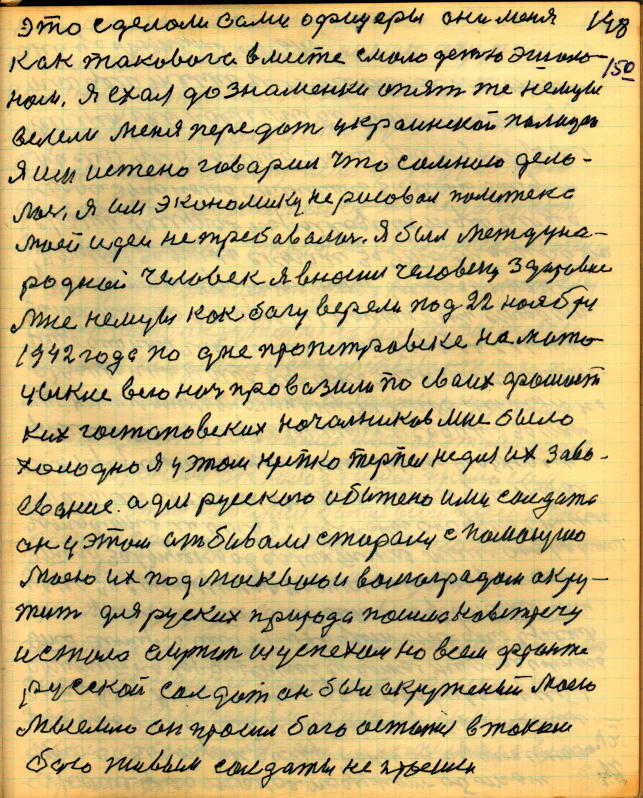 это сделоли сами офицеры они меня 148
как такового вместе смолодежю эшоло- 150
ном. Я ехал до знаменки опят же немцы
велели меня передат украинской полицаю
я им истено говорил что самною дело-
лос. я им экономику не рисовал политека
моей идеи не требавалос. Я был междуна-
родный человек я вносил человеку здоровие
мне немцы как богу верели под 22 ноября
1942 года по дне пропетровске на мото-
цыкле всю ноч провазили по сваих фашист
ких гостаповских начальников мне было
холодно я у этом крепко терпел недал их заво-
евание. а для русского обижено ими солдата
он у этом отбивали старалис с помощую
моею их под москвыю и волгоградом окру-
жит для руских природа пошла навстречу
и стало с успехом на всем фронте
русской солдат он был окруженый моею
мыслию он просил бога остатся в такои
было живым солдаты не